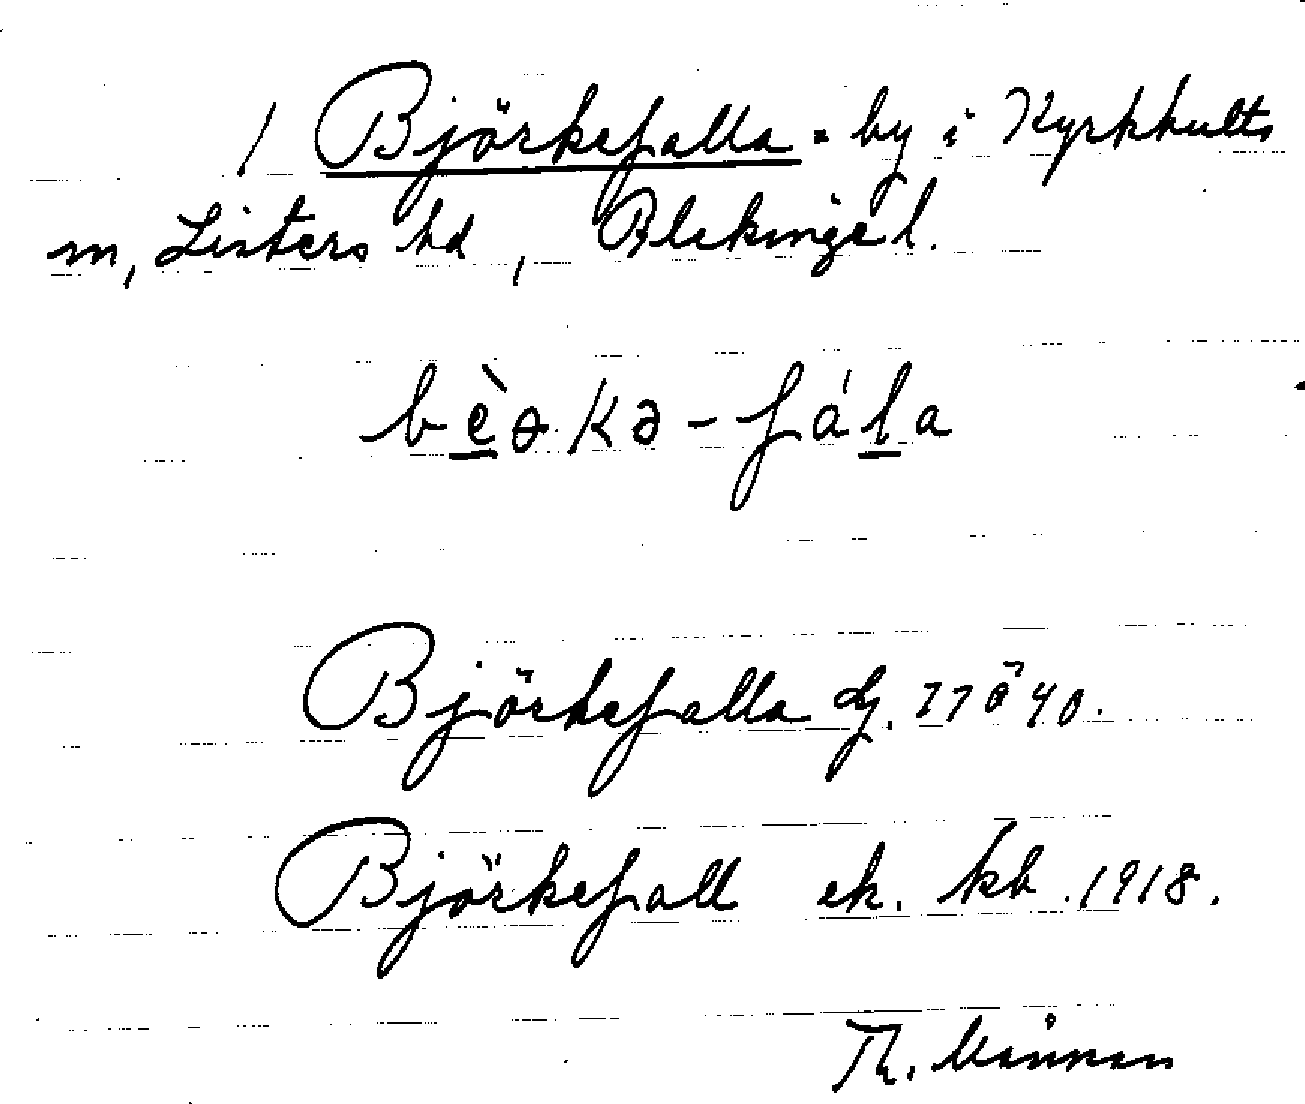 1 Björkefalla. by i Kyrkhults
sn, Listers hd, Blekinge l.
bèəkə-fála
Björkefalla dj. 77ö40.
Björkefall ek. kb. 1918.
Th.